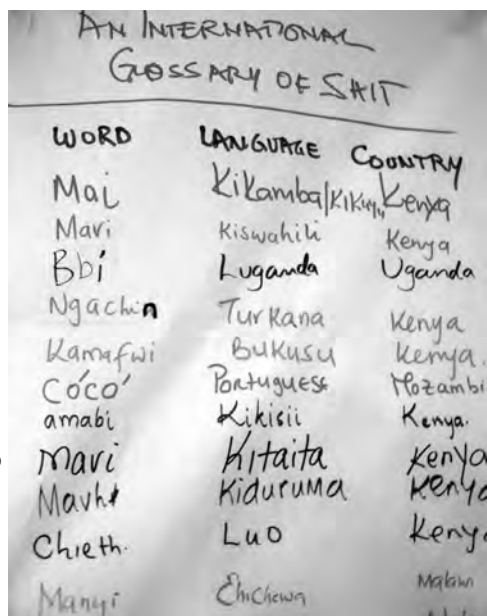 AN INTERNATIONAL
GLOSSARY OF SHIT
WORD LANGUAGE COUNTRY
Mai Kikamba/Kikuyu Kenya
Mavi Kiswahili Kenya
Bbi Luganda Uganda
Ngachin Turkana Kenya
Kamafwi BUKUSU Kenya.
CÓCÓ Portuguese Mozambi
amabi Kikisii Kenya.
Mavi Kitaita Kenya
Kiduruma Kenya
Chieth. Luo Kenya
Manyi Chichewa Malawi